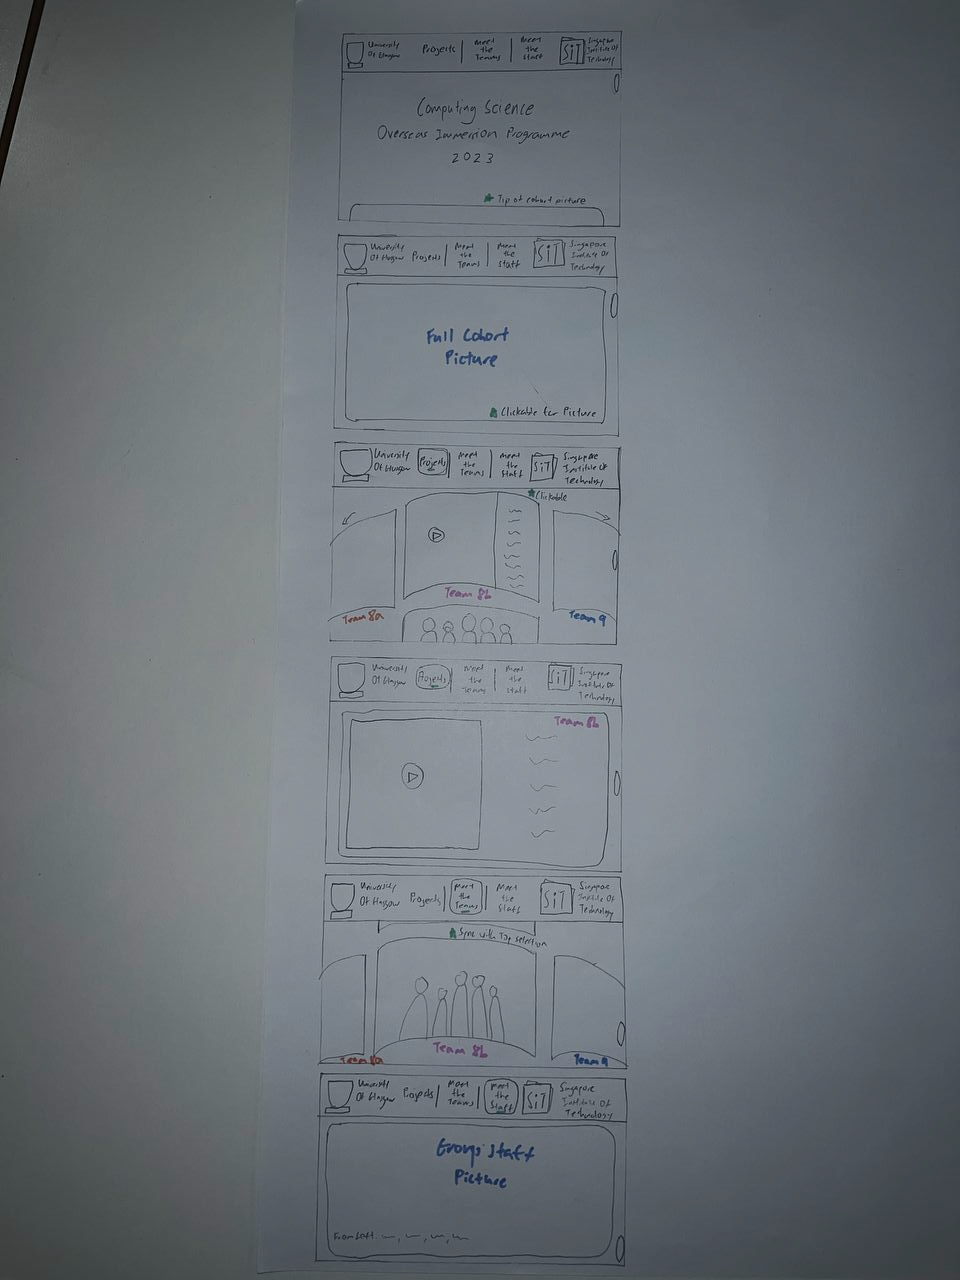 University
Of Glasgow
Projects
Meet
the
Teams
Meet
the
Staff
SiT
Singapore
Institute Of
Technology
Computing Science
Overseas Immersion Programme
2023
Tip of cohort picture
University
Of Glasgow
Projects
Meet
the
Teams
Meet
the
Staff
SiT
Singapore
Institute Of
Technology
Full Cohort
Picture
Clickable for Picture
University
Of Glasgow
Projects
Meet
the
Teams
Meet
the
Staff
SiT
Singapore
Institute Of
Technology
Clickable
Team 8b
Team 8a
Team 9
University
Of Glasgow
Projects
Meet
the
Teams
Meet
the
Staff
SiT
Singapore
Institute Of
Technology
Team 8b
University
Of Glasgow
Projects
Meet
the
Teams
Meet
the
Staff
SiT
Singapore
Institute Of
Technology
Sync with Top selection
Team 8a
Team 8b
Team 9
University
Of Glasgow
Projects
Meet
the
Teams
Meet
the
Staff
SiT
Singapore
Institute Of
Technology
Group Staff
Picture
From Left: